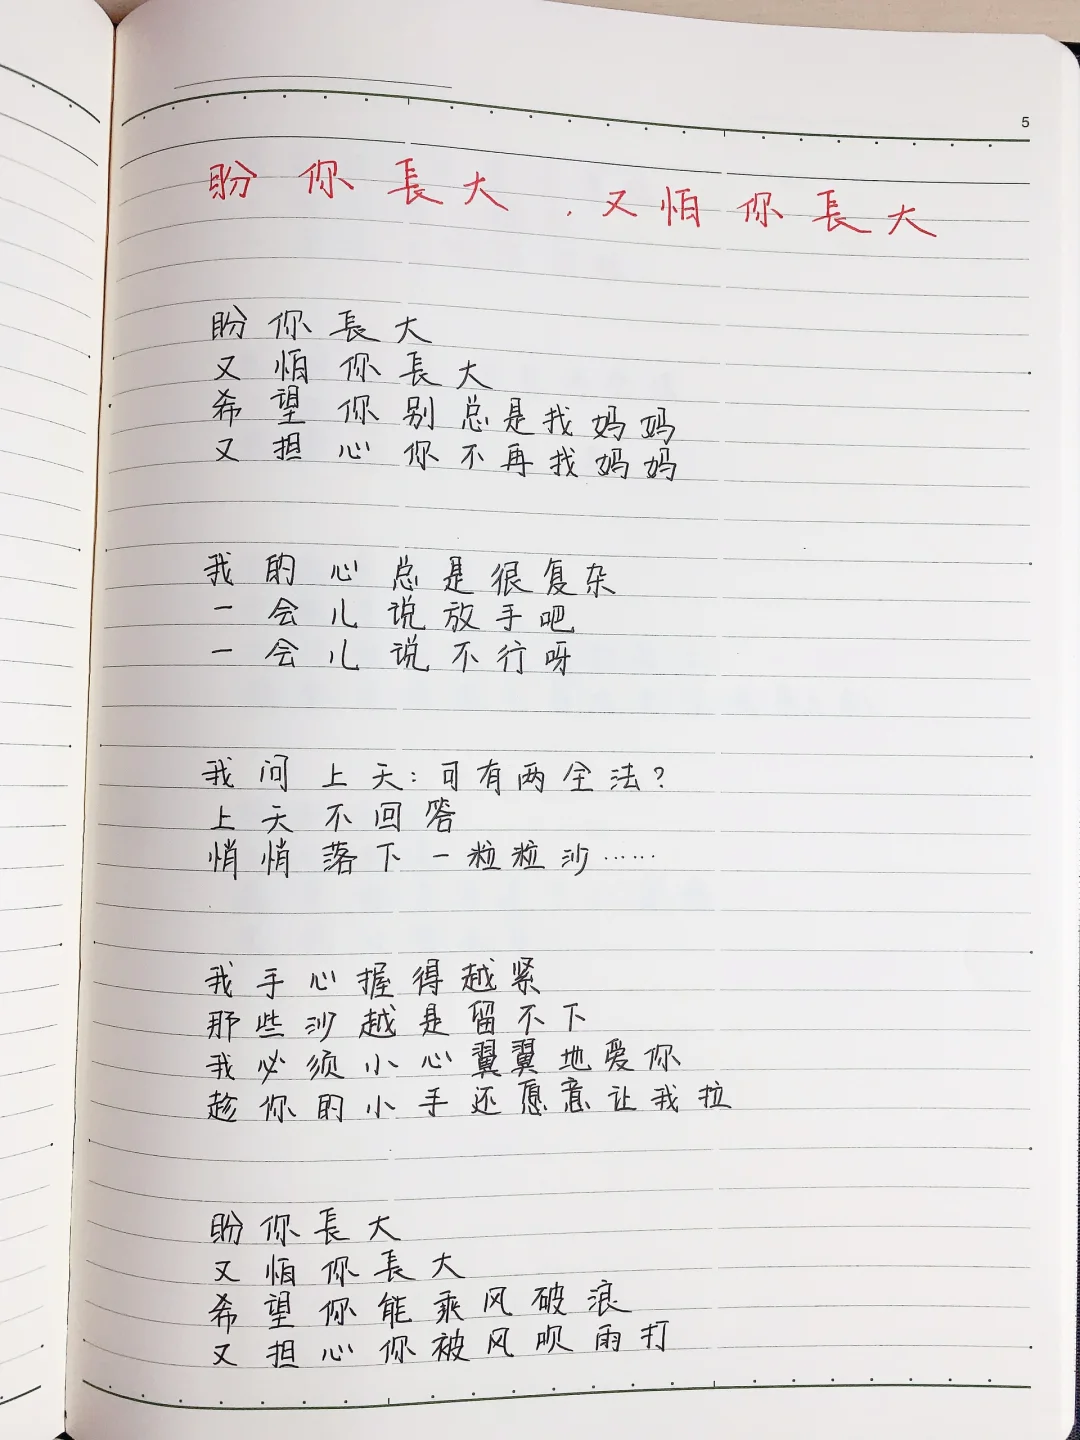 5
盼你長大，又怕你長大
盼你長大
又怕你長大
希望你别总是找妈妈
又担心你不再找妈妈
我的心总是很复杂
一会儿说放手吧
一会儿说不行呀
我问上天：可有两全法？
上天不回答
悄悄落下一粒粒沙……
我手心握得越紧
那些沙越是留不下
我必须小心翼翼地爱你
趁你的小手还愿意让我拉
盼你長大
又怕你長大
希望你能乘风破浪
又担心你被风吹雨打